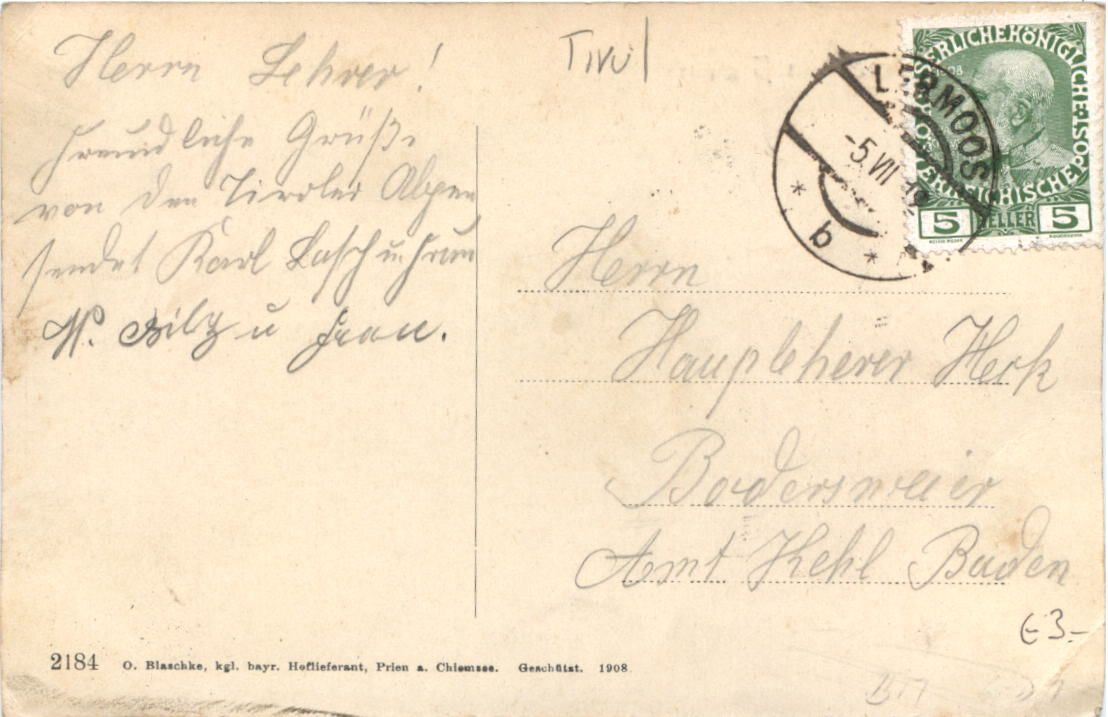 Herrn Lehrer!
freundliche Grüße
von den Tiroler Alpen
sendet Karl Lasch u. Frau
W. Bilz u Frau.
Tirol
LERMOOS
-5.VII
* b *
1908
KAISERLICHEKÖNIGLICHE
ÖSTERREICHISCHEPOST
5 HELLER 5
Herrn
Haupleherer Herk
Bodersweier
Amt Kehl Baden
€3-
2184 O. Blaschke, kgl. bayr. Hoflieferant, Prien a. Chiemsee. Geschützt. 1908.